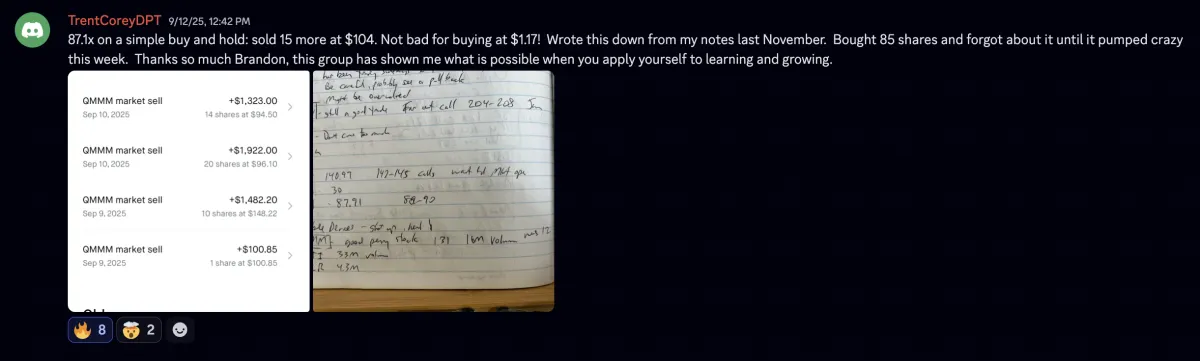 TrentCoreyDPT 9/12/25, 12:42 PM
87.1x on a simple buy and hold: sold 15 more at $104. Not bad for buying at $1.17! Wrote this down from my notes last November. Bought 85 shares and forgot about it until it pumped crazy
this week. Thanks so much Brandon, this group has shown me what is possible when you apply yourself to learning and growing.
QMMM market sell +$1,323.00
Sep 10, 2025 14 shares at $94.50
QMMM market sell +$1,922.00
Sep 10, 2025 20 shares at $96.10
QMMM market sell +$1,482.20
Sep 9, 2025 10 shares at $148.22
QMMM market sell +$100.85
Sep 9, 2025 1 share at $100.85
be careful, possibly see a pull back
Might be overvalued
still a good grade For out call 204-208 Jan
140.97 142-145 calls wait
30
87.91 88-90
good penny stock 16M volume
33M volume
4.3M
8
2